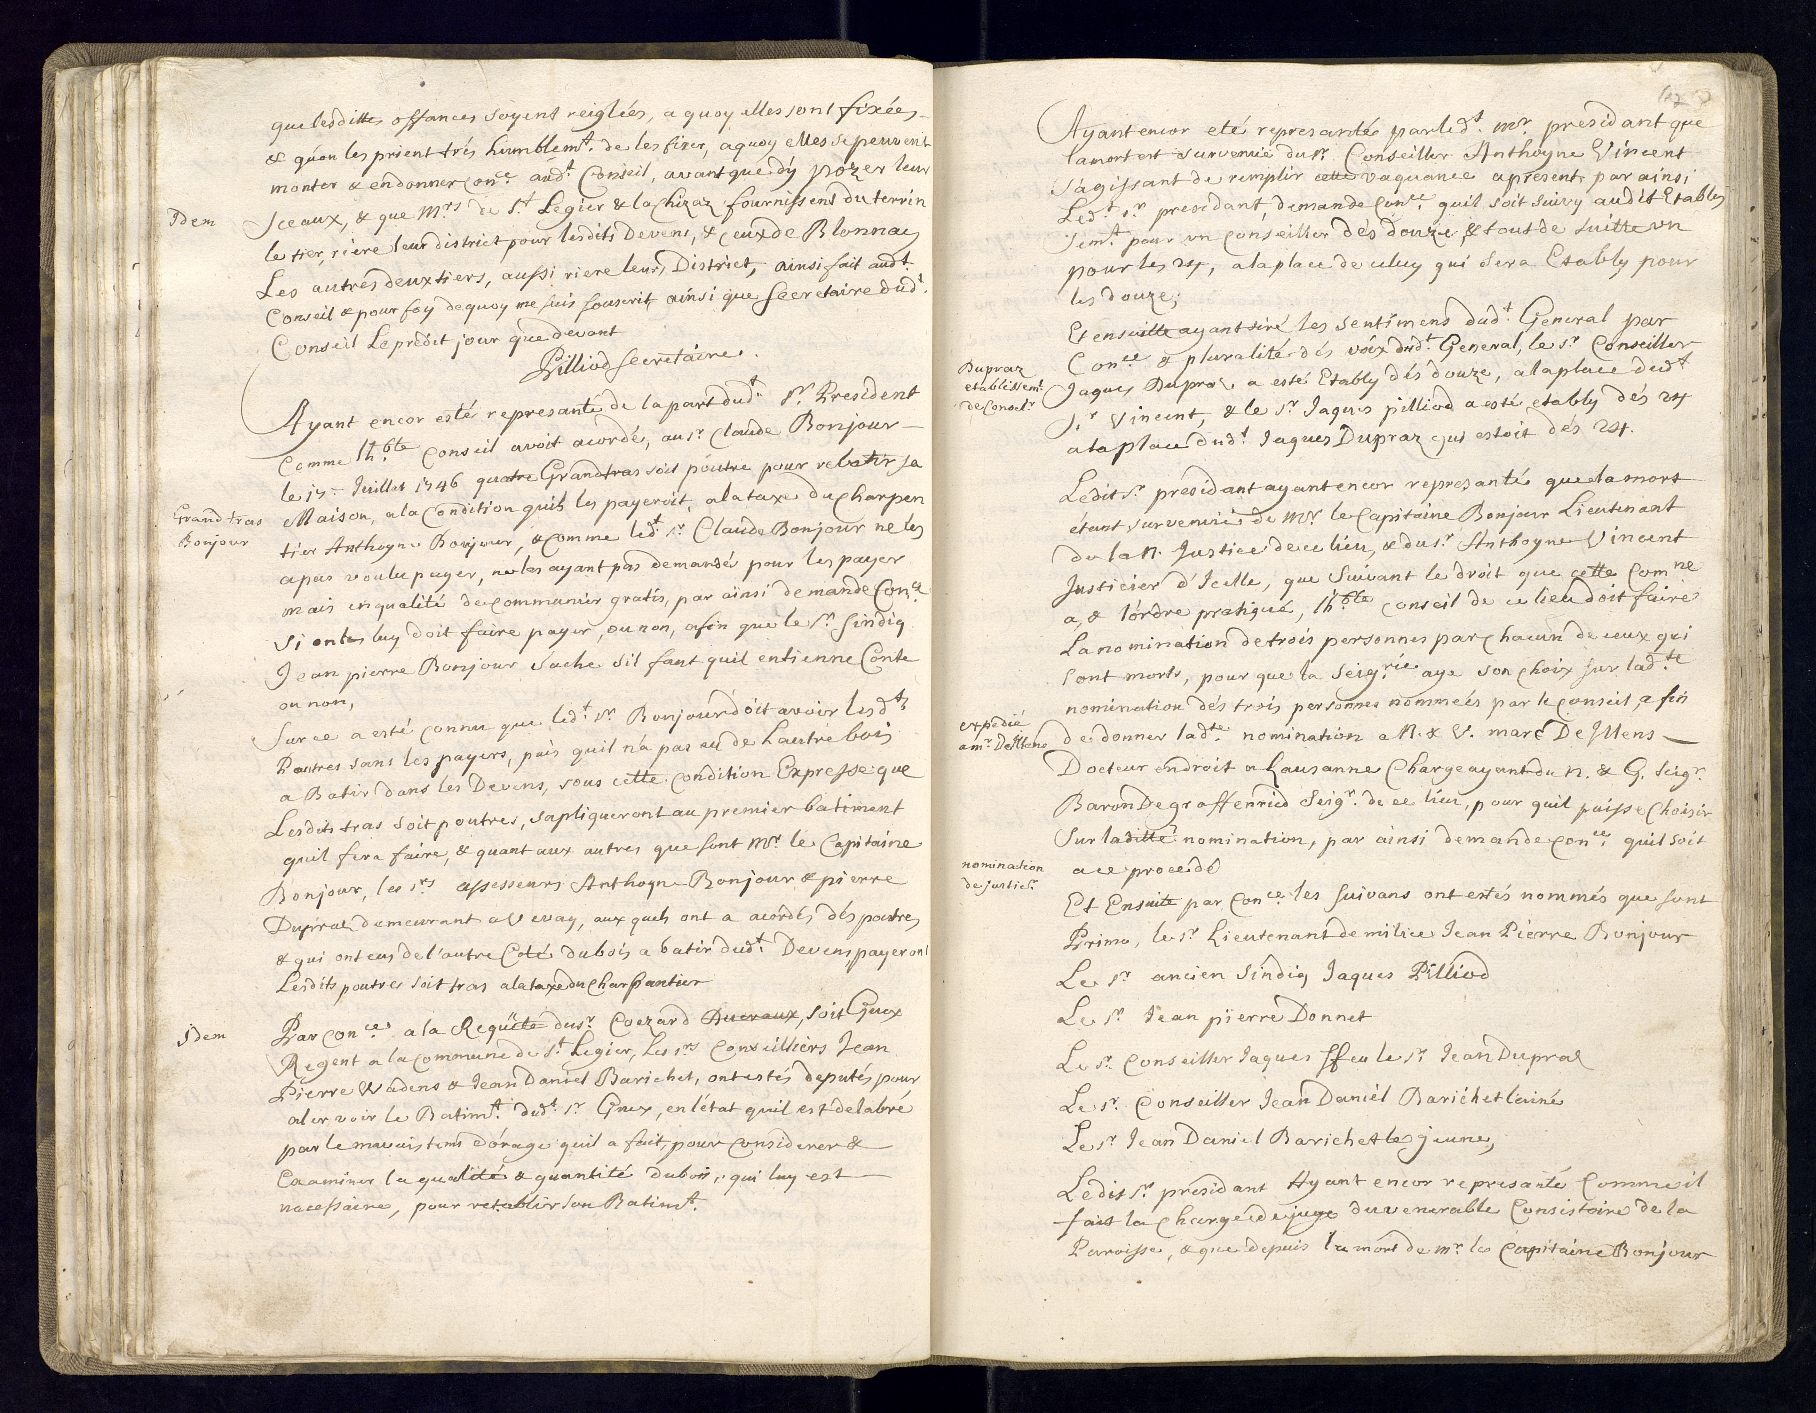 que lesdittes offances soyent reiglées, a quoy elles sont fixées
& qu'on les prient trés humblem.t de les fixer, a quoy elles se peuvent
monter & en donner con.ce aud.t Conseil, avant que d'y pozer leur
Idem
Sceaux, & que M.rs de S.t Legier & la Chizaz fournissent du terrin
le tier, riere leur district pour lesdits Devens, & ceux de Blonnay
Les autres deux tiers, aussi riere leurs District, ainsi fait aud.t
Conseil & pour foy de quoy me suis souscrit ainsi que Secretaire dud.t
Conseil Le prédit jour que devant
Pilliod secretaire.
Ayant encor esté represanté de la part dud.t S.r President
Comme l'h.ble Conseil avoit acordés, au s.r Claude Bonjour
le 17.e Juillet 1746 quatre Grand tras soit poutre pour rebatir sa
Grand tras
Bonjour
Maison, a la Condition quil les payeroit, a la taxe du Charpen
tier Anthoyne Bonjour, & comme led.t s.r Claude Bonjour ne les
a pas voulu payer, ne les ayant pas demandés pour les payer
mais en qualité de communier gratis, par ainsi demande Con.ce
si on les luy doit faire payer, ou non, afin que le S.r sindiq
Jean pierre Bonjour sache s'il faut quil en tienne Conte
ou non,
Sur ce a esté connu que led.t s.r Bonjour doit avoir lesd.ts
Poutres sans les payers, puis quil n'a pas eu de L'autre bois
a Batir dans les Devens, sous cette condition Expresse que
Lesdits tras soit poutres, s'apliqueront au premier batiment
quil fera faire, & quant aux autres que sont M.r le Capitaine
Bonjour, les s.rs assesseurs Anthoyne Bonjour & pierre
Dupraz demeurant a Vevay, aux quels ont a acordés dés poutres
& qui ont eus de l'autre Coté du bois a batir dud.t Devens, payeront
Lesdits poutres soit tras a la taxe du Charpantier
Idem
Par con.ce a la Requête du s.r Coezard Ducraux, soit Guex
Regent a la commune de S.t Legier, Les s.rs Conseilliers Jean
Pierre Wadens & Jean Daniel Barichet, ont estés deputés pour
aler voir le Batim.t dud.t s.r Guex, en l'état quil est delabré
par le mauvais tems d'orage quil a fait, pour considerer &
Examiner la qualité & quantité du bois, qui luy est
necessaire, pour retablir son Batim.t
Ayant encor eté represanté par led.t M.r presidant que
la mort est survenuë du s.r Conseiller Anthoyne Vincent
s'agissant de remplir cette vaquance a présent, par ainsi
Led.t s.r presidant, demande con.ce quil soit suivy audit Etablis
sem.t pour un conseiller dés douze, & tout de suitte un
pour les 24, a la place de celuy qui sera Etably pour
les douze;
Et ensuitte ayant tiré les sentimens dud.t General par
Dupraz
etablissem.t
de Conse.r
Con.ce & pluralité dés voix dud.t General, le s.r Conseiller
Jaques Dupraz a esté Etably dés douze, a la place dud.t
S.r Vincent, & le s.r Jaques pilliod a esté etably dés 24
a la place dud.t Jaques Dupraz qui estoit dés 24.
Ledit s.r présidant ayant encor represanté que la mort
étant survenuë de M.r le Capitaine Bonjour Lieutenant
de la N. Justice de ce lieu, & du s.r Anthoyne Vincent
Justicier d'Icelle, que suivant le droit que cette com.ne
a, & l'ordre pratiqué, l'h.ble conseil de ce lieu doit faire
La nomination de trois personnes par chacun de ceux qui
sont morts, pour que la seig.rie aye son choix sur lad.te
nomination dés trois personnes nommeés par le conseil, a fin
expedié
a m.r DeIllens
de donner lad.te nomination a N. & V. marc DeIllens
Docteur en droit a Lausanne Charge ayant du N. & G. seig.r
Baron Degraffenried seig.r de ce lieu, pour quil puisse Choisir
sur laditte nomination, par ainsi demande con.ce quil soit
nomination
de justic.r
a ce procedé
Et Ensuite par con.ce les suivans ont estés nommés que sont
Primo, le s.r Lieutenant de milice Jean Pierre Bonjour
Le s.r ancien sindiq Jaques Pilliod
Le s.r Jean pierre Donnet
Le s.r Conseiller Jaques ffeu le s.r Jean Dupraz
Le s.r Conseiller Jean Daniel Barichet l'ainé
Le s.r Jean Daniel Barichet le jeune,
Ledit s.r présidant Ayant encor represanté Comme il
fait la charge de juge du venerable Consistoire de la
Paroisse, & que depuis la mort de m.r le Capitaine Bonjour